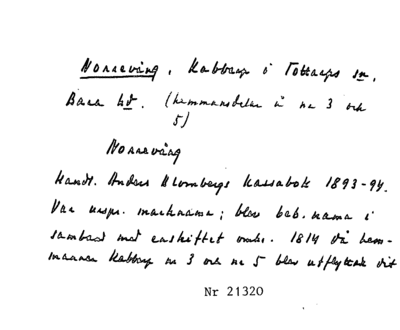 Norrevång, Kabbarp i Tottarps sn,
Bara hd. (hemmansdelar å nr 3 och
5)
Norrevång
Handl. Anders Blombergs Kassabok 1893-94.
Var urspr. marknamn; blev beb.namn i
samband med enskiftet omkr. 1814 då hem-
mannen Kabbarp nr 3 och nr 5 blev utflyttade dit
Nr 21320